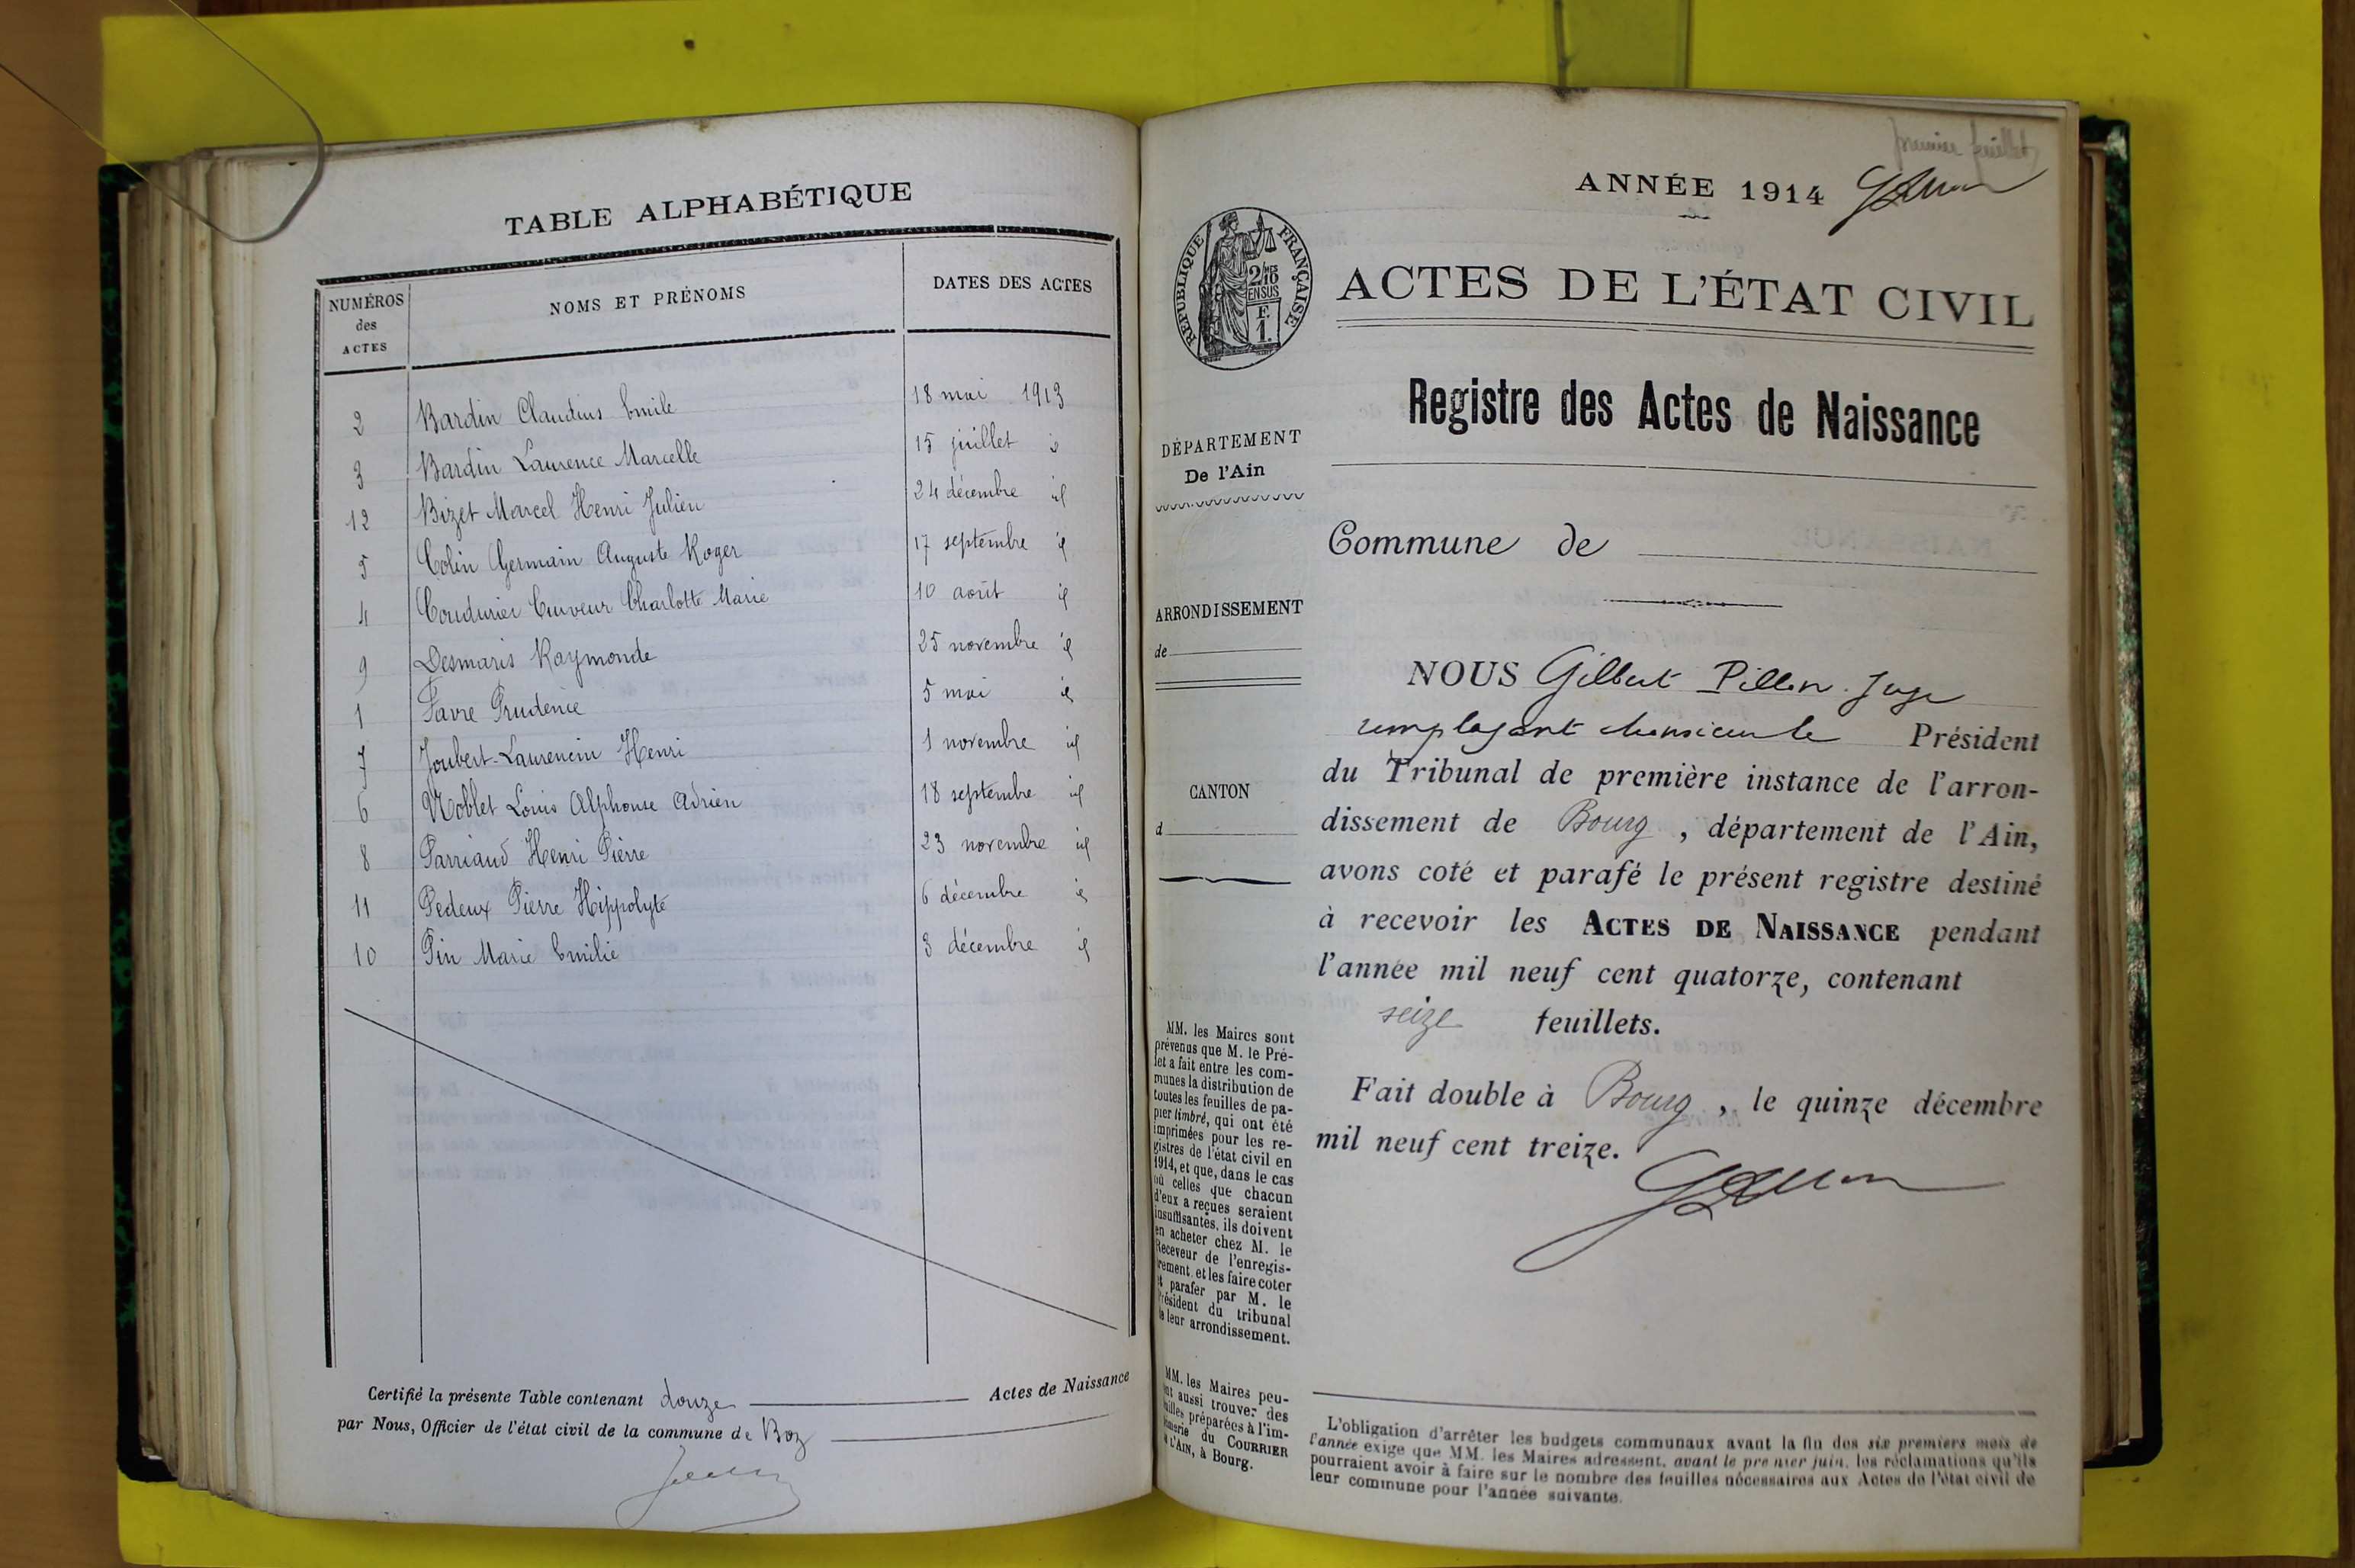 TABLE ALPHABÉTIQUE
NUMÉROS des ACTES NOMS ET PRÉNOMS DATES DES ACTES
2 Bardin Claudius Emile 18 mai 1913
3 Bardin Laurence Marcelle 15 juillet id
12 Bizet Marcel Henri Julien 24 décembre id
5 Colin Germain Auguste Roger 17 septembre id
4 Coudurier Curveur Charlotte Marie 10 août id
9 Desmaris Raymonde 25 novembre id
1 Favre Prudence 5 mai id
7 Joubert-Laurencin Henri 1 novembre id
6 Noblet Louis Alphonse Adrien 18 septembre id
8 Parriaud Henri Pierre 23 novembre id
11 Pedeux Pierre Hippolyte 6 décembre id
10 Pin Marie Emilie 3 décembre id
Certifié la présente Table contenant douze Actes de Naissance
par Nous, Officier de l'état civil de la commune de Boz
premier feuillet
ANNÉE 1914
RÉPUBLIQUE FRANÇAISE
2/10
EN SUS
F.
1.
ACTES DE L'ÉTAT CIVIL
Registre des Actes de Naissance
DÉPARTEMENT
De l'Ain
Commune de
ARRONDISSEMENT
de
CANTON
d
NOUS Gilbert Pillon Juge
remplaçant Monsieur le Président
du Tribunal de première instance de l'arron-
dissement de Bourg, département de l'Ain,
avons coté et parafé le présent registre destiné
à recevoir les ACTES DE NAISSANCE pendant
l'année mil neuf cent quatorze, contenant
seize feuillets.
Fait double à Bourg, le quinze décembre
mil neuf cent treize.
MM. les Maires sont
prévenus que M. le Pré-
fet a fait entre les com-
munes la distribution de
toutes les feuilles de pa-
pier timbré, qui ont été
imprimées pour les re-
gistres de l'état civil en
1914, et que, dans le cas
où celles que chacun
d'eux a reçues seraient
insuffisantes, ils doivent
en acheter chez M. le
Receveur de l'enregis-
trement et les faire coter
et parafer par M. le
Président du tribunal
de leur arrondissement.
MM. les Maires peu-
vent aussi trouver des
feuilles préparées à l'im-
primerie du COURRIER
DE L'AIN, à Bourg.
L'obligation d'arrêter les budgets communaux avant la fin des six premiers mois de
l'année exige que MM. les Maires adressent, avant le premier juin, les réclamations qu'ils
pourraient avoir à faire sur le nombre des feuilles nécessaires aux Actes de l'état civil de
leur commune pour l'année suivante.